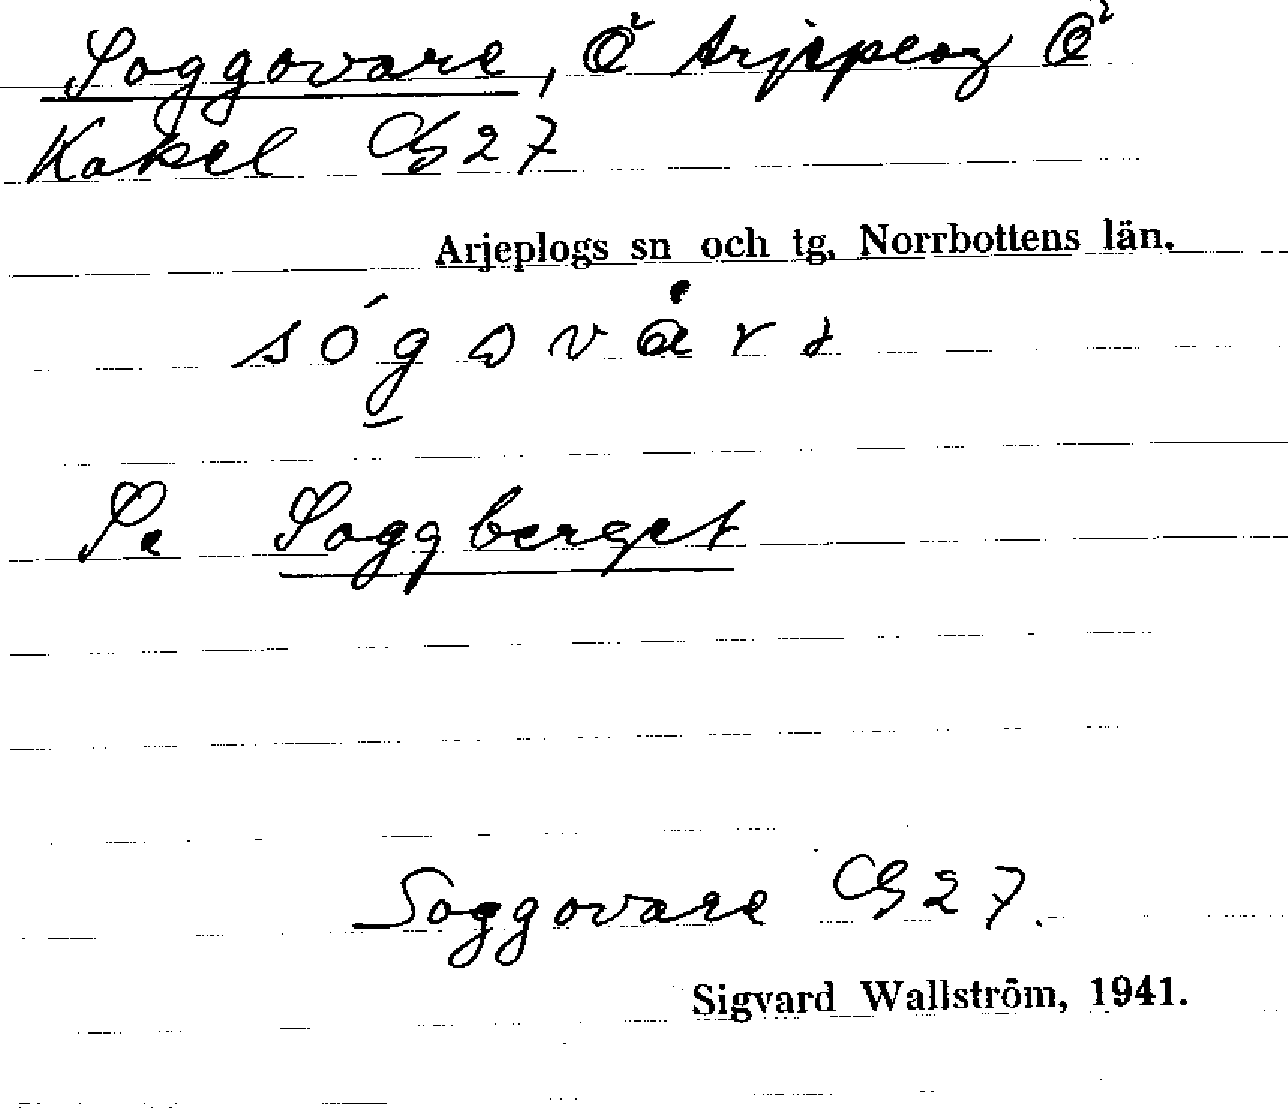 Soggovare, Ö² Arjeplog Ö²
Kakel CB 27
Arjeplogs sn och tg, Norrbottens län.
Se Soggberget
Soggovare CB 27.
Sigvard Wallström, 1941.